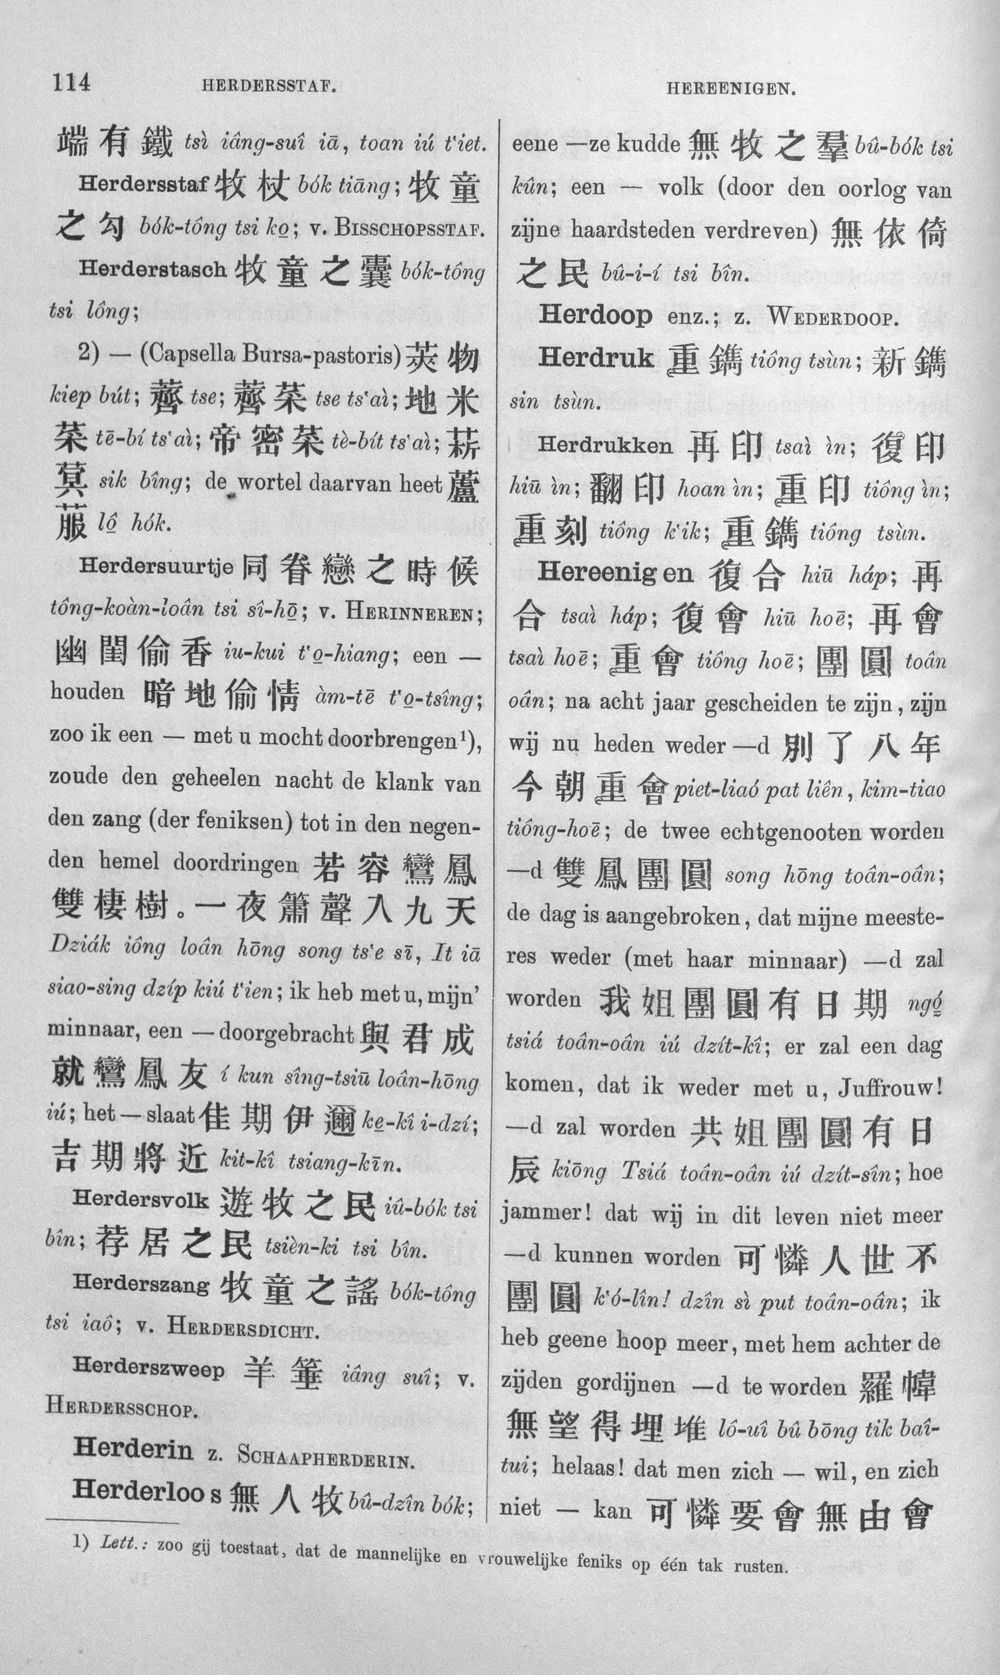 114 HERDERSSTAF. HEREENIGEN.
端有鐵 tsì iâng-suî iā, toan iú t'iet.
Herdersstaf 牧杖 bók tiāng; 牧童
之勾 bók-tông tsi ko̱; v. BISSCHOPSSTAF.
Herderstasch 牧童之囊 bók-tông
tsi lông;
2) — (Capsella Bursa-pastoris) 莢物
kiep bút; 薺 tse; 薺菜 tse ts'aì; 地米
菜 tē-bí ts'aì; 帝密菜 tè-bít ts'aì; 菥
蓂 sik bîng; de wortel daarvan heet 蘆
菔 lô̱ hók.
Herdersuurtje 同眷戀之時候
tông-koàn-loân tsi sî-hō̱; v. HERINNEREN;
幽閨偷香 iu-kui t'o̱-hiang; een —
houden 暗地偷情 àm-tē t'o̱-tsîng;
zoo ik een — met u mocht doorbrengen¹),
zoude den geheelen nacht de klank van
den zang (der feniksen) tot in den negen-
den hemel doordringen 若容鸞鳳
雙棲樹。一夜簫聲入九天
Dziák iông loân hōng song ts'e sī, It iā
siao-sing dzíp kiú t'ien; ik heb met u, mijn'
minnaar, een — doorgebracht 與君成
就鸞鳳友 í kun sîng-tsiū loân-hōng
iú; het — slaat 佳期伊邇 ke̱-kî i-dzí;
吉期將近 kit-kî tsiang-kīn.
Herdersvolk 遊牧之民 iû-bók tsi
bîn; 荐居之民 tsièn-ki tsi bîn.
Herderszang 牧童之謠 bók-tông
tsi iaô; v. HERDERSDICHT.
Herderszweep 羊箠 iâng suî; v.
HERDERSSCHOP.
Herderin z. SCHAAPHERDERIN.
Herderloos 無人牧 bû-dzîn bók;
eene —ze kudde 無牧之羣 bû-bók tsi
kûn; een — volk (door den oorlog van
zijne haardsteden verdreven) 無依倚
之民 bû-i-í tsi bîn.
Herdoop enz.; z. WEDERDOOP.
Herdruk 重鐫 tiông tsùn; 新鐫
sin tsùn.
Herdrukken 再印 tsaì ìn; 復印
hiū ìn; 翻印 hoan ìn; 重印 tiông ìn;
重刻 tiông k'ik; 重鐫 tiông tsùn.
Hereenigen 復合 hiū háp; 再
合 tsaì háp; 復會 hiū hoē; 再會
tsaì hoē; 重會 tiông hoē; 團圓 toân
oân; na acht jaar gescheiden te zijn, zijn
wij nu heden weder —d 別了八年
今朝重會 piet-liaó pat liên, kim-tiao
tiông-hoē; de twee echtgenooten worden
—d 雙鳳團圓 song hōng toân-oân;
de dag is aangebroken, dat mijne meeste-
res weder (met haar minnaar) —d zal
worden 我姐團圓有日期 ngó̱
tsiá toân-oân iú dzít-kî; er zal een dag
komen, dat ik weder met u, Juffrouw!
—d zal worden 共姐團圓有日
辰 kiōng Tsiá toân-oân iú dzít-sîn; hoe
jammer! dat wij in dit leven niet meer
—d kunnen worden 可憐人世不
團圓 k'ó-lîn! dzîn sì put toân-oân; ik
heb geene hoop meer, met hem achter de
zijden gordijnen —d te worden 羅幃
無望得埋堆 lô-uî bû bōng tik baî-
tui; helaas! dat men zich — wil, en zich
niet — kan 可憐要會無由會
1) Lett.: zoo gij toestaat, dat de mannelijke en vrouwelijke feniks op één tak rusten.